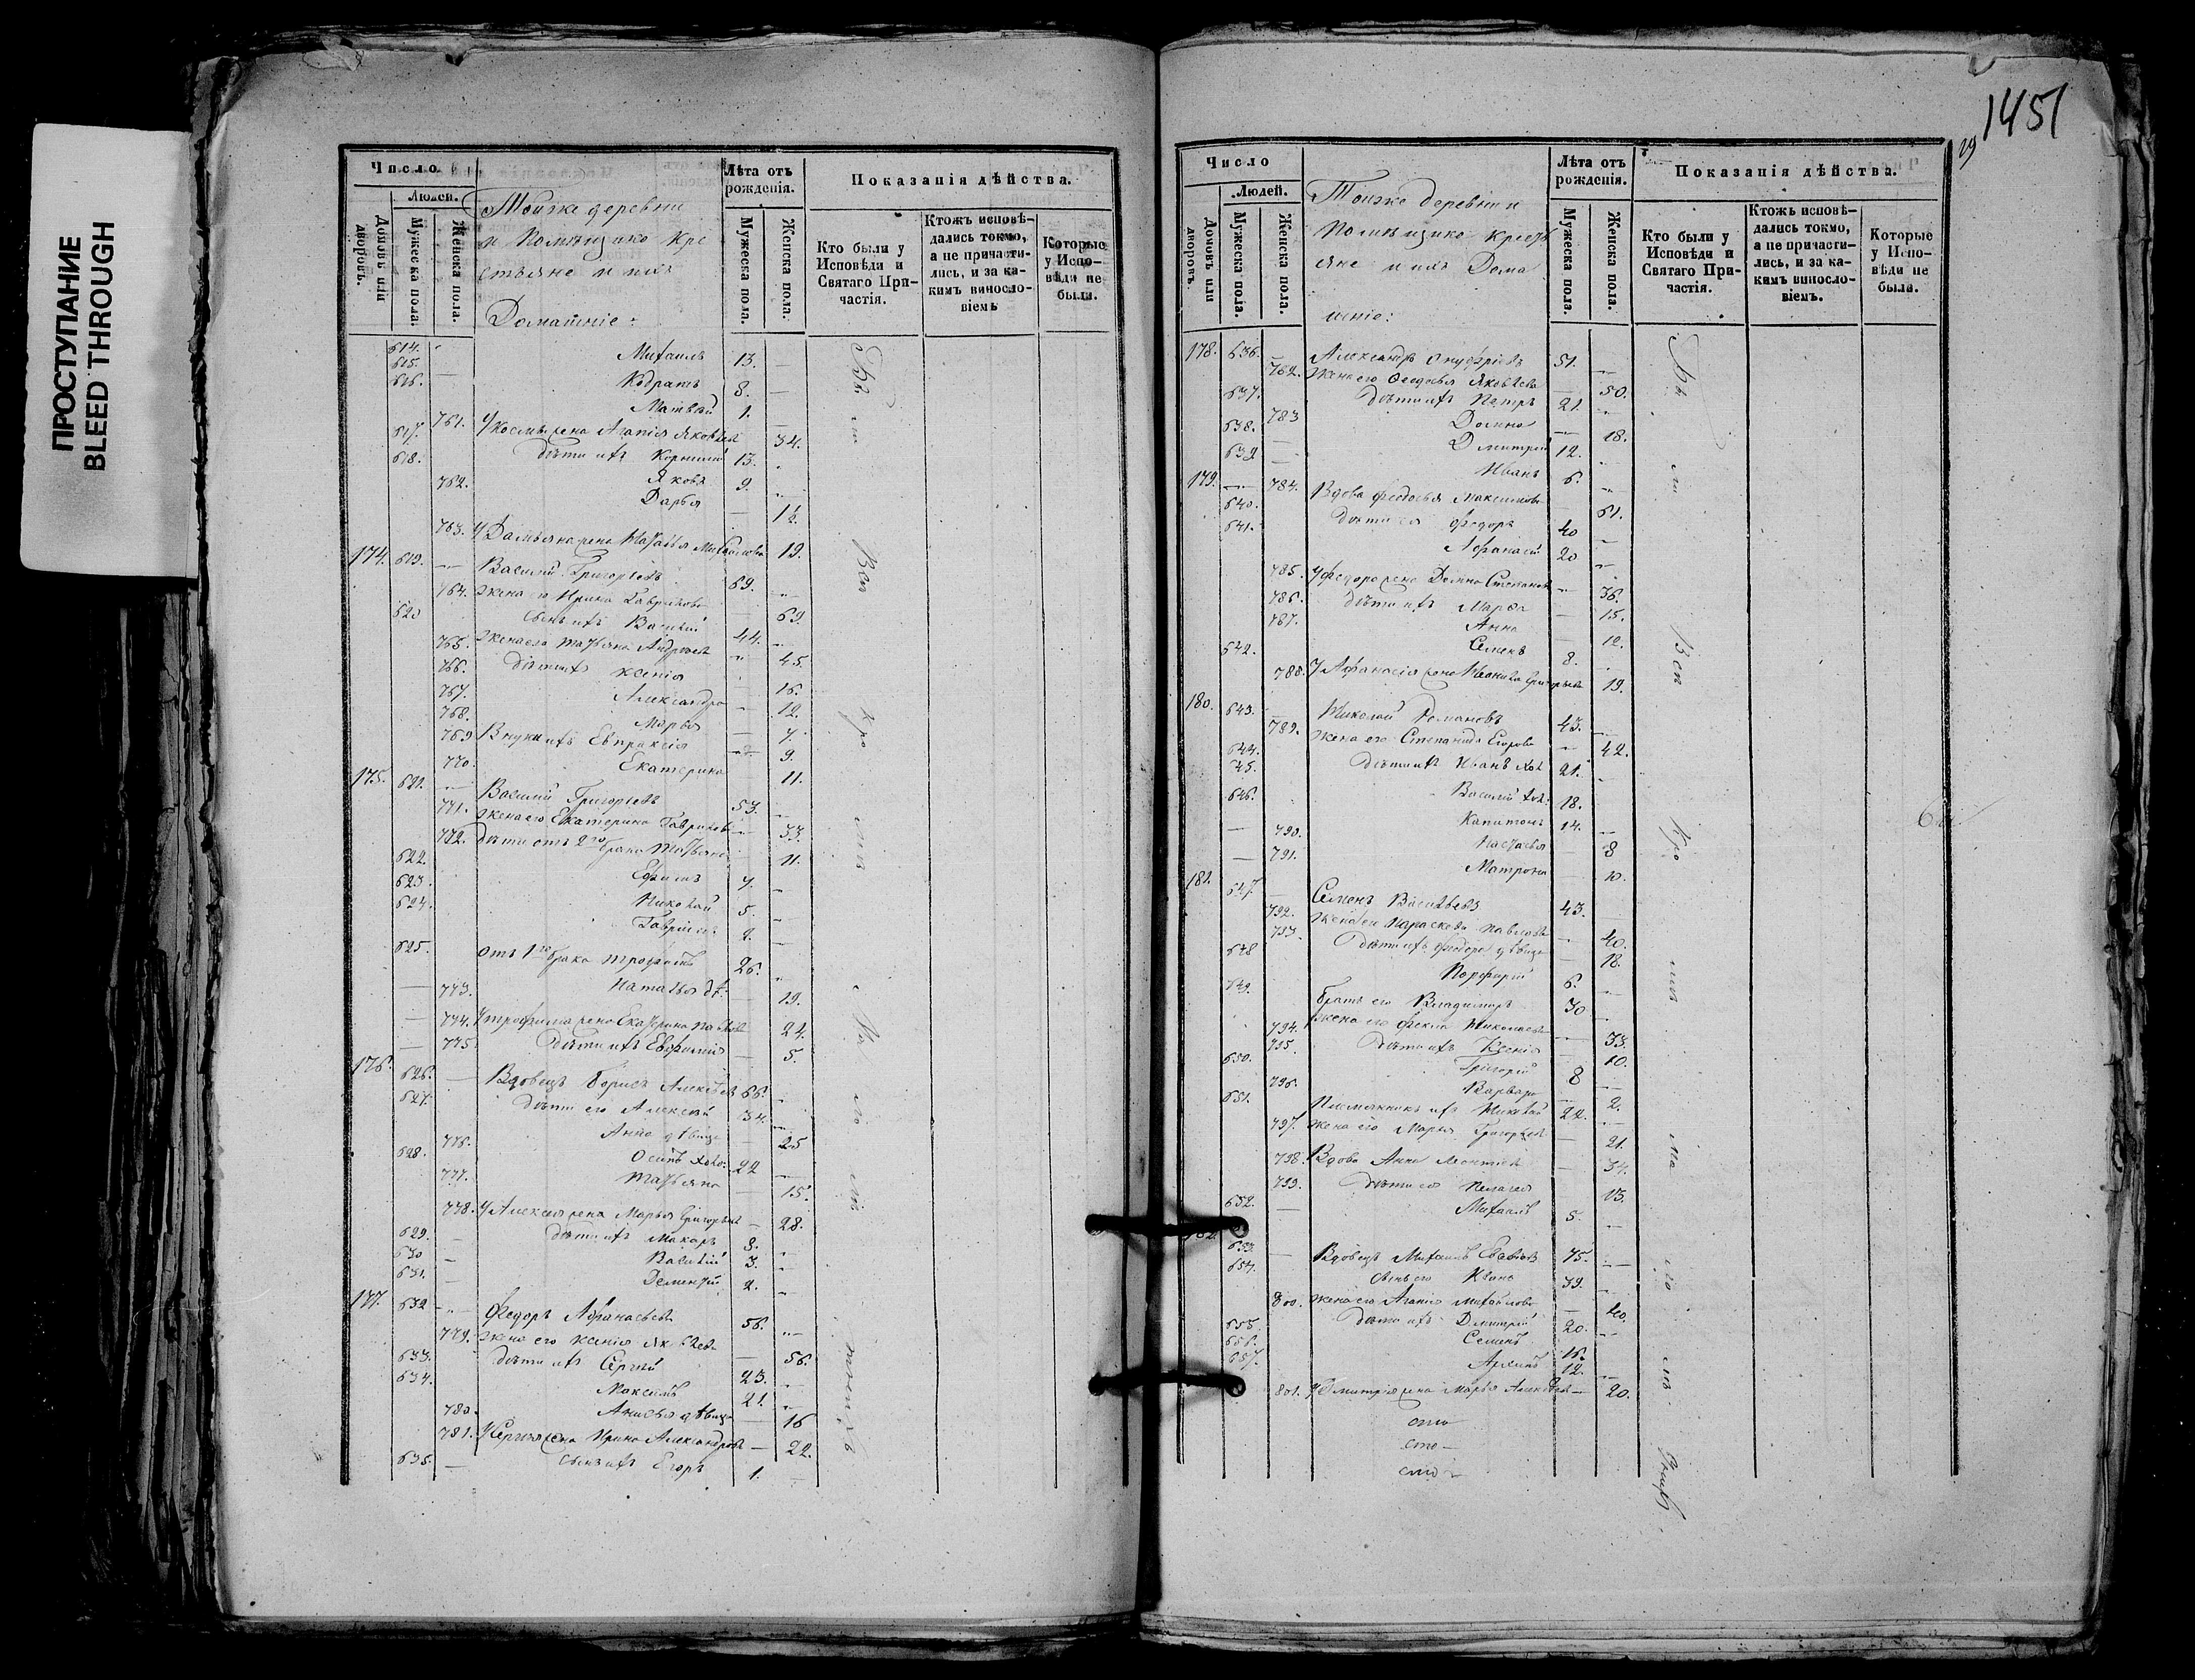 ПРОСТУПАНИЕ
BLEED THROUGH
1451
29
Число.
Людей.
Домовъ или дворовъ.
Мужеска пола.
Женска пола.
Тойже деревни
и Помѣщико Кре
стьяне и ихъ
Домашніе:
Лѣта отъ рожденія.
Мужеска пола.
Женска пола.
Показанія дѣйства.
Кто были у Исповѣди и Святаго Причастія.
Ктожъ исповѣдались токмо, а не причастились, и за какимъ винословіемъ
Которые у Исповѣди не были.
614. Михаилъ 13.
615. Кодратъ 8.
616. Матвей 1.
761. У Космы жена Агапія Яковлев 34.
617. Дѣти ихъ Корнилій 13.
618. Яковъ 9.
762. Дарья 12.
763. У Дамьяна жена Наталья Михайлова 19.
174. 619. Василій Григорьевъ 69.
764. Жена его Ирина Гаврилова 69.
620 Сынъ ихъ Василий 44.
765. Жена его Татьяна Андреева 45.
766. Дѣти ихъ Ксенія 16.
767. Александра 12.
768. Марья 7.
769 Внуки ихъ Евпраксія 9.
770. Екатерина 11.
175. 621. Василий Григорьевъ 53.
771. Жена его Екатерина Гаврилов 33.
772. Дѣти отъ 2го брака Татьяна 11.
622. Ефимъ 7.
623. Николай 5.
624. Гавріилъ 2.
625. Отъ 1го брака Трофимъ 26.
773. Наталья дѣ. 19.
774. У Трофима жена Екатерина Павлов 24.
775 Дѣти ихъ Евфимія 5.
176. 626. Вдовецъ Борисъ Алексѣев 66.
627. Дѣти его Алексѣй 34.
776. Анна дѣвица 25
628. Осипъ холо. 22
777. Татьяна 15.
778. У Алексея жена Марья Григорьев 28.
629. Дѣти ихъ Макаръ 8.
630 Василій 3.
631. Дементій 2.
177. 632 Федоръ Афанасьевъ 56.
779. Жена его Ксенія Яковлев 56.
633. Дѣти ихъ Сергей 23.
634. Максимъ 21.
780. Анисья дѣвица 16
781. У Сергея жена Ирина Александров 22.
635. Сынъ ихъ Егоръ 1.
Число
Людей.
Домовъ или дворовъ.
Мужеска пола.
Женска пола.
Тойже Деревни и
Помѣщико Кресть
яне и ихъ Дома
шніе:
Лѣта отъ рожденія.
Мужеска пола.
Женска пола.
Показанія дѣйства.
Кто были у Исповѣди и Святаго Причастія.
Ктожъ исповѣдались токмо, а не причастились, и за какимъ винословіемъ.
Которые у Исповѣди не были.
178. 636. Александръ Онуфріевъ 51.
782. Жена его Феодосья Яковлева 50.
637. Дѣти ихъ Петръ 21.
783 Домна 18.
638. Дмитрій 12.
639 Иванъ 6.
179. 784. Вдова Феодосья Максимова 61.
640. Дѣти ея Федоръ 40
641. Афанасій 20
785. У Федора жена Домна Степанов 36.
786. Дѣти ихъ Марфа 15.
787. Анна 12.
642. Семенъ 8.
788. У Афанасія жена Григорьева 19.
180. 643. Николай Романовъ 43.
789. Жена его Степанида Егорова 42.
644. Дѣти ихъ Иванъ хол 21.
645. Василій хол. 18.
646. Капитонъ 14.
790. Настасья 8
791. Матрона 10.
181. 647. Семенъ Васильевъ 43.
792. Жена его Параскева Павлова 40.
793. Дѣти ихъ Федора дѣвица 18.
648 Порфирій 6.
649. Братъ его Владимиръ 30
794. Жена его Фекла Николаев 33.
795. Дѣти ихъ Ксенія 10.
650. Григорій 8
796. Варвара 2.
651. Племянникъ ихъ Николай 22.
797. Жена его Марья Григорьев 21.
798. Вдова Анна Леонтьев 34.
799. Дѣти ея Пелагея 13.
652. Михаилъ 5.
182. 653. Вдовецъ Михаилъ 75.
654. Сынъ его Иванъ 39.
800. Жена его Агапія Михайлова 40.
655. Дѣти ихъ Дмитрій 20.
656. Семенъ 16.
657. Архипъ 12.
801. У Дмитрія жена Марья Алексѣев 20.